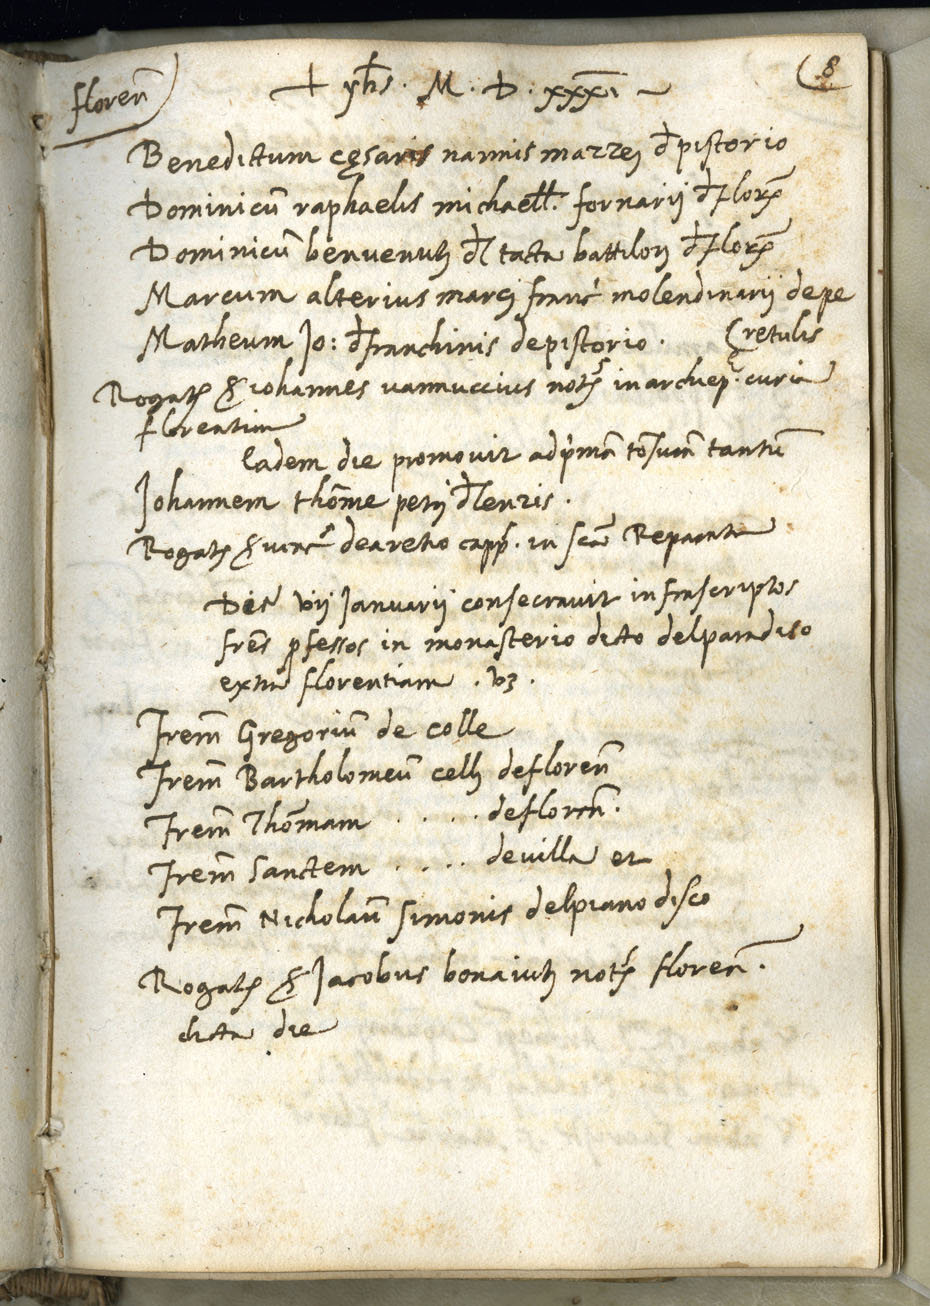 floren̄
8
+ yhs. M. D. xxxi
Benedictum cęsaris nannis mazzei d̄ pistorio
Dominicū raphaelis michaell. fornarij d̄ florē
Dominicū benvenutj dl̄ tatta battilorj d̄ florē
Marcum alterius marcj franc̄ molendinarij de pe
Matheum Jo: d̄ franchinis de pistorio. retulis
Rogatꝭ ser iohannes vannuccius notꝭ in archiep. curia
florentina
Eadem die promovit ad p̄mā tōsurā tantū
Johannem thōme petrj dl̄ lenzis.
Rogatꝭ ser vinc̄ de aretio capp. in scā Reparata
Die vij Januarij consecravit infrascriptos
fres̄ ꝓfessos in monasterio dicto del paradiso
extra florentiam . vꝫ.
Frem̄ Gregoriū de colle
Frem̄ Bartholomeū cellj de floren̄
Frem̄ Thōmam ..... de floren̄.
Frem̄ Sanctem .... de villa et
Frem̄ Nicholaū simonis del piano disco
Rogatꝭ ser Jacobus bonaiutj notꝭ floren̄.
dicta die